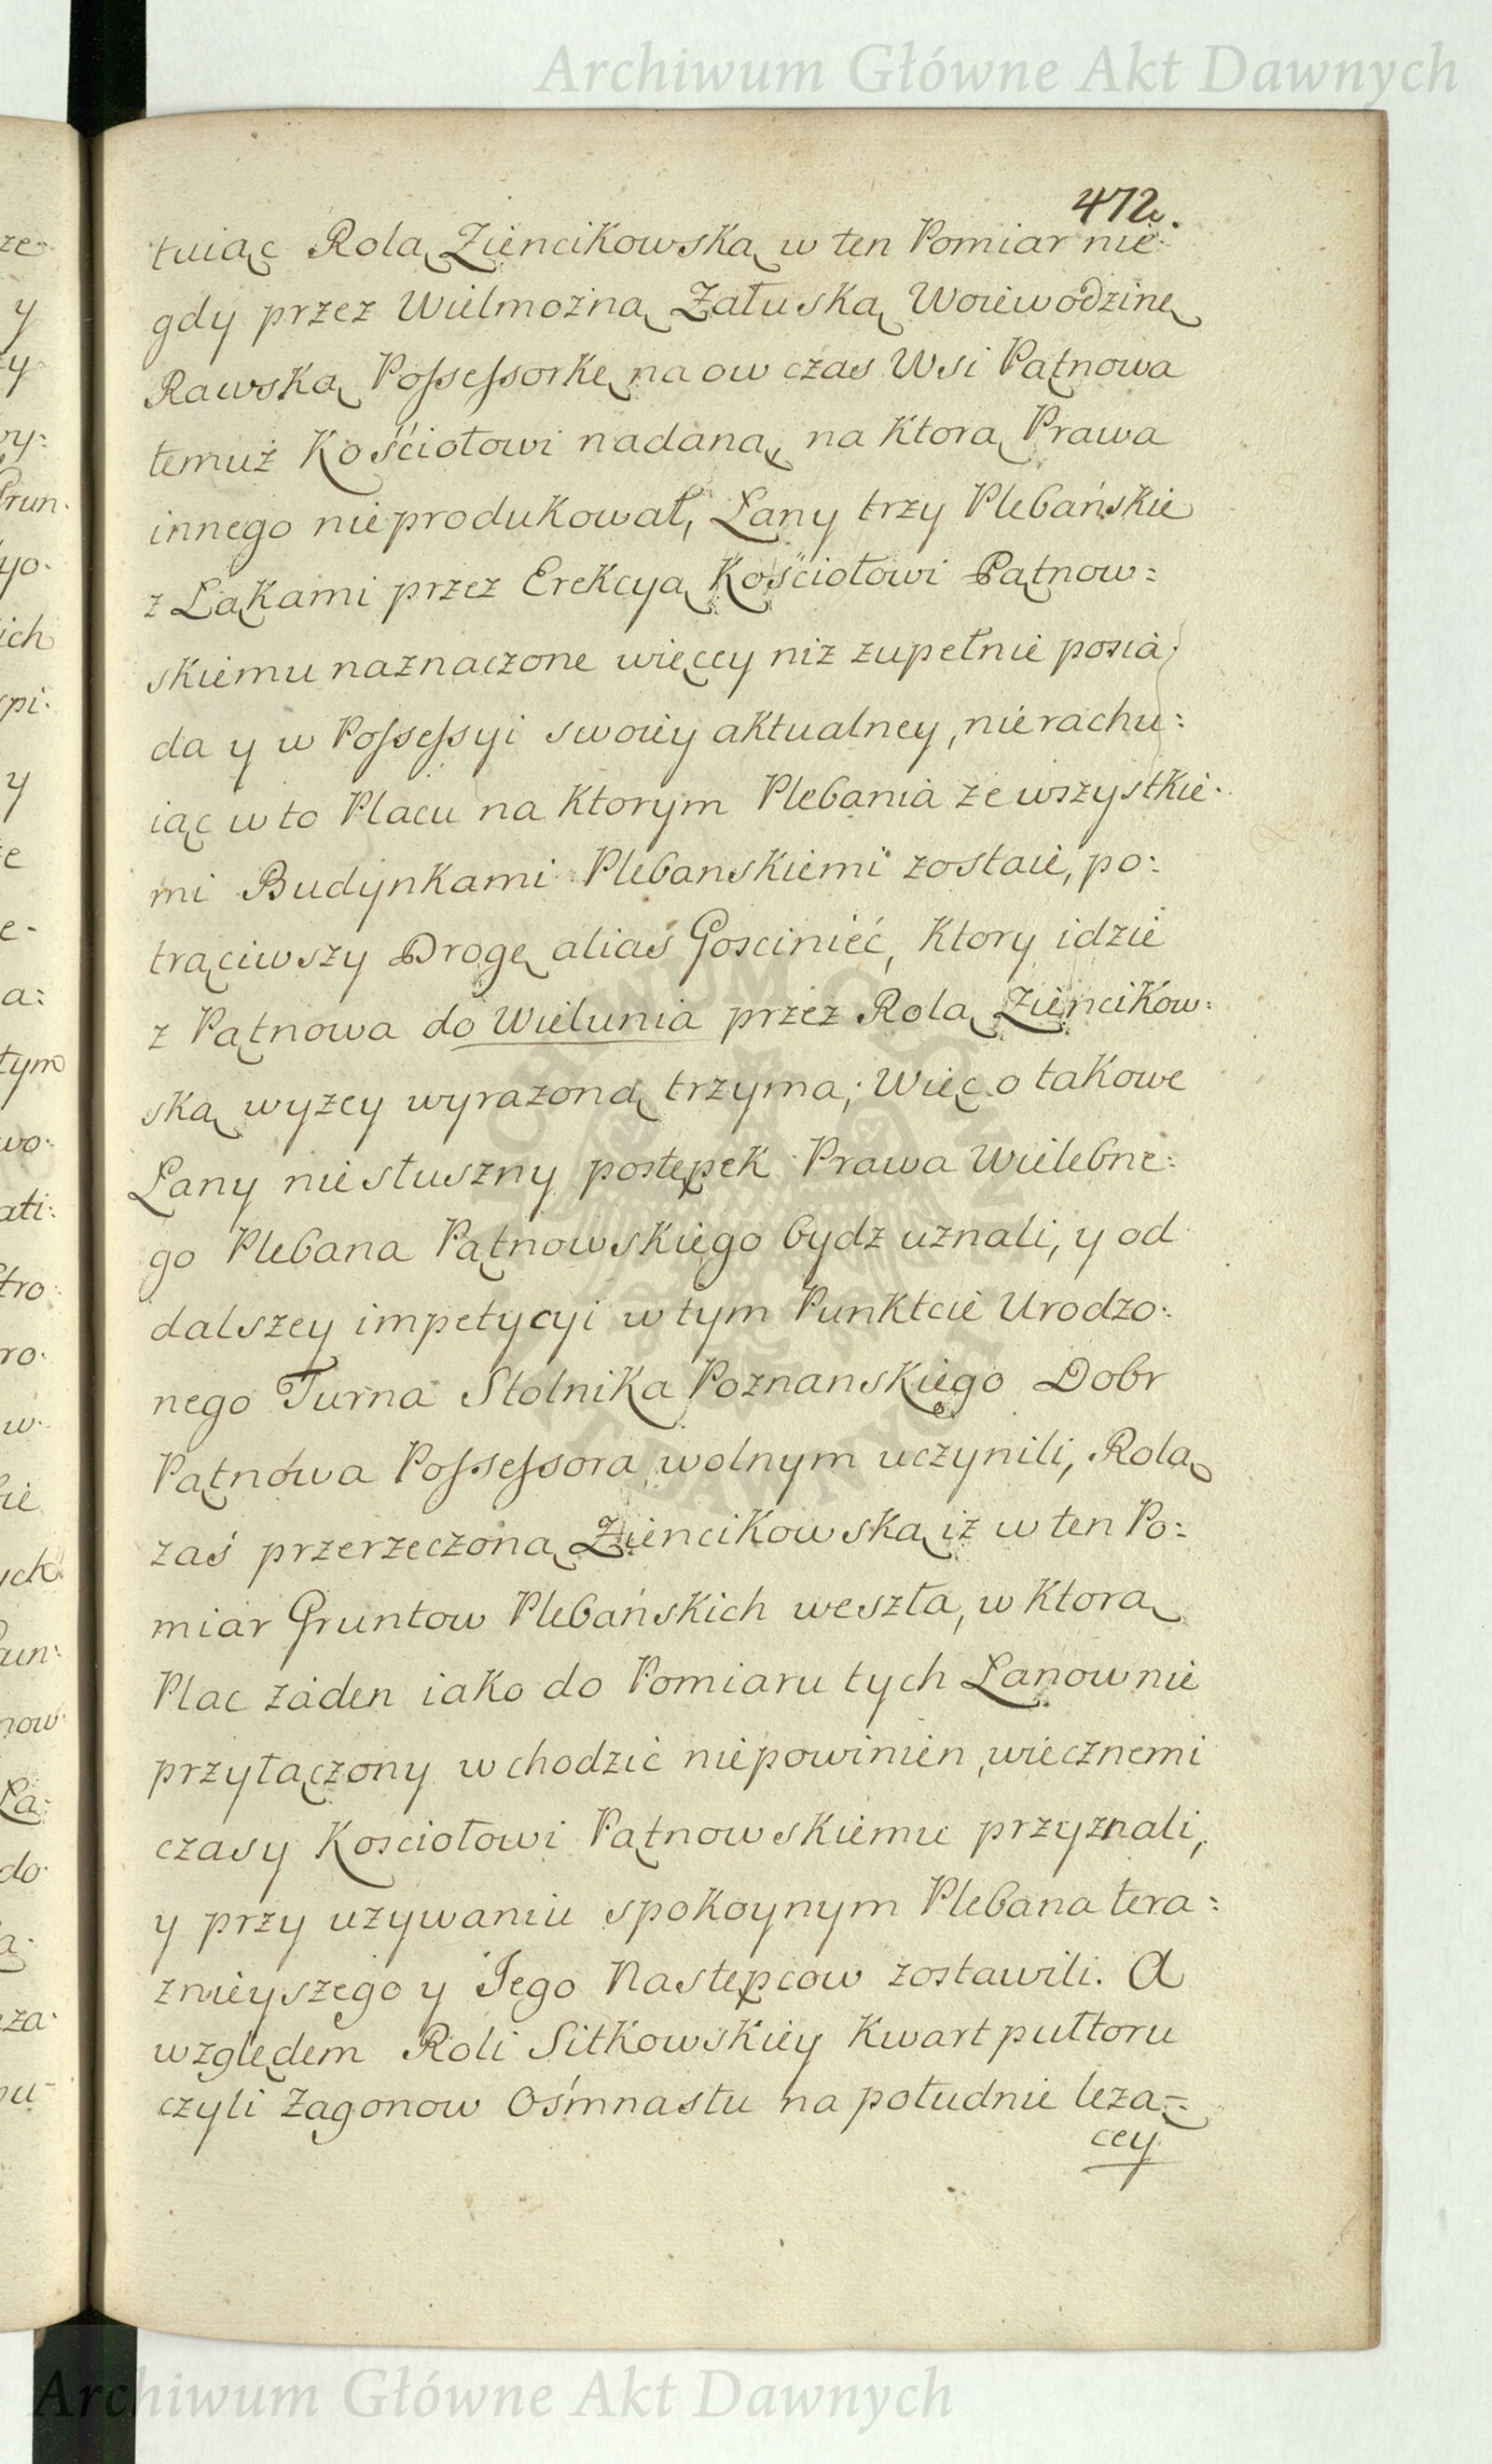 Archiwum Główne Akt Dawnych
472.
tuiąc Rolą Zięncikowską w ten Pomiar nie:
gdy przez Wielmożną Załuską Woiewodzinę
Rawską Possessorkę na ow czas Wsi Pątnowa
temuż Kościołowi nadaną, na Ktorą Prawa
innego nieprodukował, Łany trzy Plebańskie
z Łąkami przez Erekcyą Kościołowi Pątnow:
skiemu naznaczone więcey niz zupełnie posia
da y w Possessyi swoiey aktualney, nierachu:
iąc w to Placu na Ktorym Plebania ze wszystkie:
mi Budynkami Plebanskiemi zostaie, po:
trąciwszy Drogę alias Gosciniéć, Ktory idzie
z Pątnowa do Wielunia przez Rolą Zięncikow:
ską wyzey wyrazoną trzyma; Więc o takowe
Łany niesłuszny postępek Prawa Wielebne:
go Plebana Pątnowskiego bydz uznali, y od
dalszey impetycyi w tym Punktcie Urodzo:
nego Turna Stolnika Poznanskiego Dobr
Pątnówa Possessora wolnym uczynili, Rolą
zaś przerzeczoną Zięncikowską iz w ten Po:
miar Gruntow Plebańskich weszła, w Ktorą
Plac záden iako do Pomiaru tych Łanow nie
przyłączony wchodzić niepowinien, wiecznemi
czasy Kosciołowi Pątnowskiemu przyznali,
y przy uzywaniu spokoynym Plebana tera:
znieyszego y Jego Następcow zostawili. A
względem Roli Sitkowskiey Kwart pułtoru
czyli Zagonow Ośmnastu na południe lezą=
cey
ze-
y
zy
oy:
Grun.
yo.
ich
spi.
y
e
e-
a:
tym
wo.
ati:
tro.
ro.
w.
ie
ych
un:
now
Ła:
do.
a.
za.
ou-
Archiwum Główne Akt Dawnych